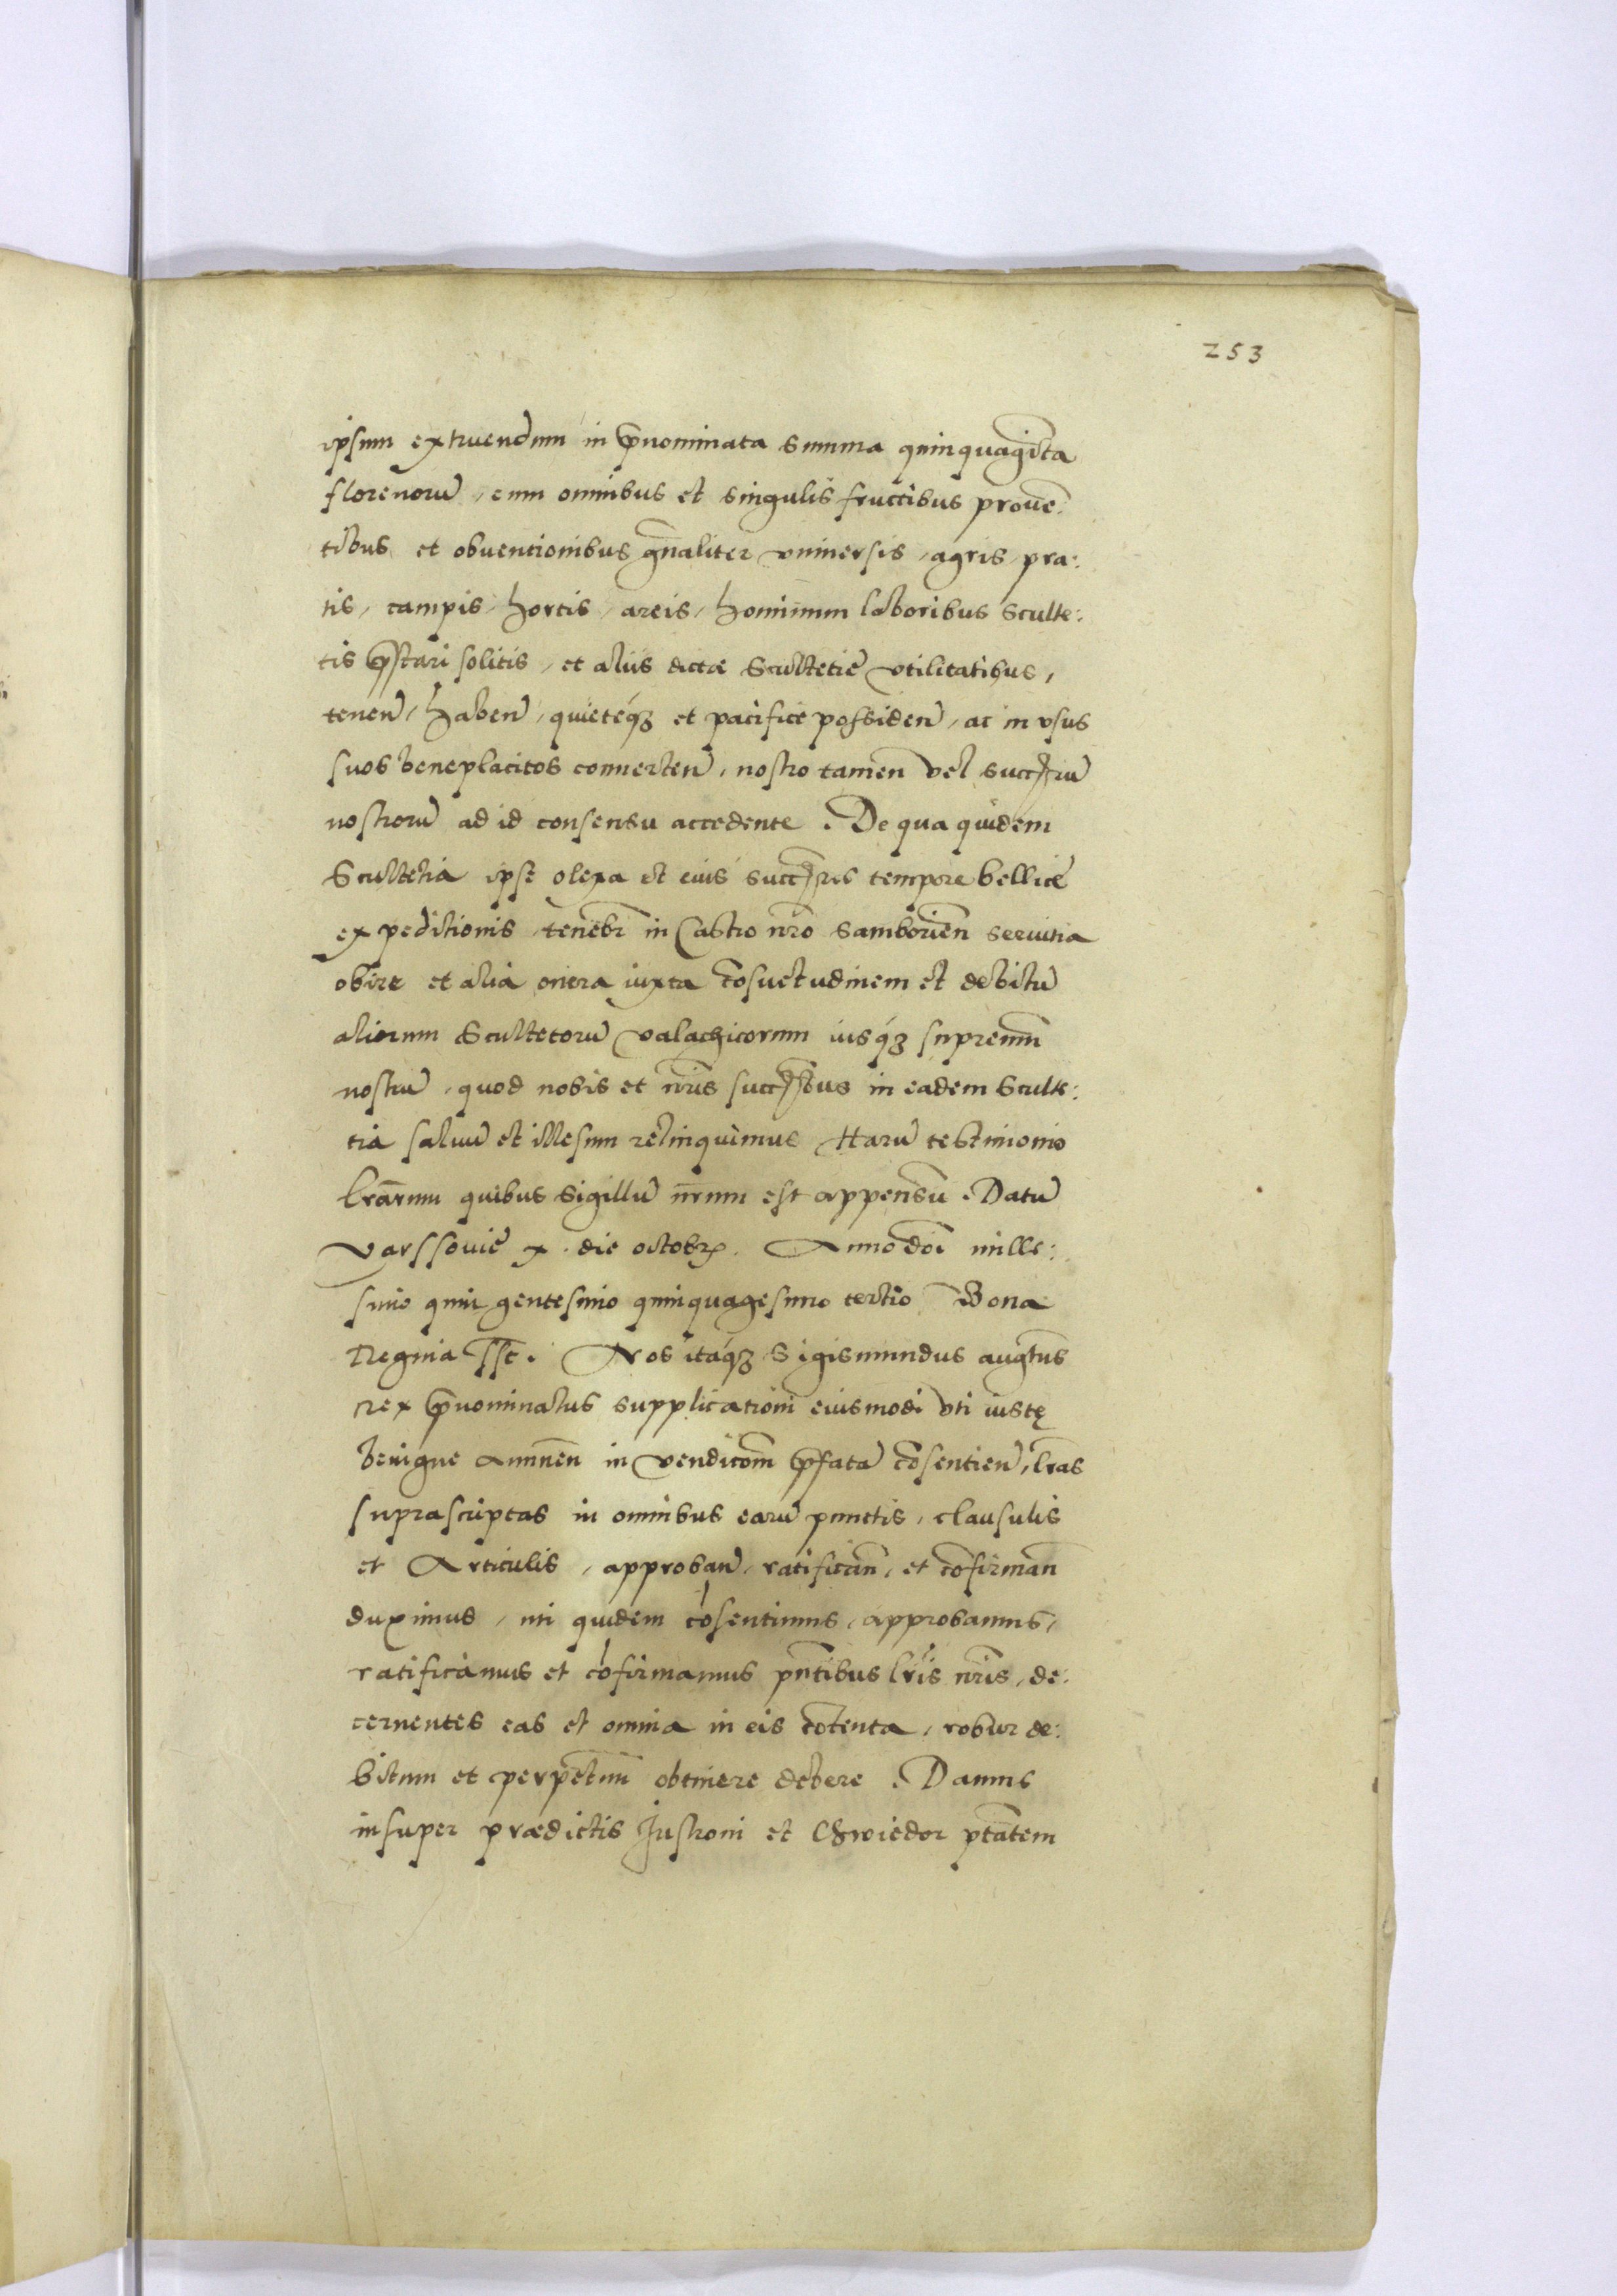 253
ipsum extruendum in p̄nominata summa quinquagīta
florenorū, cum omnibus et singulis fructibus prouē:
tibus et obuentionibus gn̄aliter vniuersis, agris, pra:
tis, campis, hortis, areis, hominum laboribus Sculte:
tis p̄stari solitis, et aliis dictæ Scultetiē vtilitatibus,
tenen̄, haben̄, quietéqꝫ et pacifice possiden̄, ac in vsus
suos beneplacitos conuerten̄, nostro tamen vel succ̄rū
nostrorū ad id consensu accedente. De qua quidem
Scultetia ipse olexa et eius succ̄ris tempore bellicē
expeditionis tenebr̄ in Castro nr̄o Samborien̄ seruitia
obire et alia onera iuxta cōsuetudinem et debitū
aliorum Scultetorū valachicorum iusqꝫ supremū
nostrū, quod nobis et nr̄is succ̄ribus in eadem Sculte:
tia saluū et illesum relinquimus Harū testimonio
lrārum quibus sigillū nr̄um est appensū. Datū
Varssouiē x. die octobr̄. Anno doī mille:
simo quingentesimo quinquagesimo tertio Bona
Regina sst̄. Nos itaqꝫ Sigismundus augtūs
Rex p̄nominatus supplicationi eiusmodi vti iustę
benigne annuen̄ in vendicōm p̄fatā cōsentien̄, lrās
suprascriptas in omnibus earū punctis, clausulis
et Articulis, approban̄, ratifican̄, et cōfirman̄
duximus, uti quidem cōsentimus, approbamus,
ratificamus et cōfirmamus pn̄tibus lrīs nrīs, de:
cernentes eas et omnia in eis cōtenta, robur de:
bitum et perpetuū obtinere debere. Damus
insuper prædictis Justroni et Chwiedor ptātem